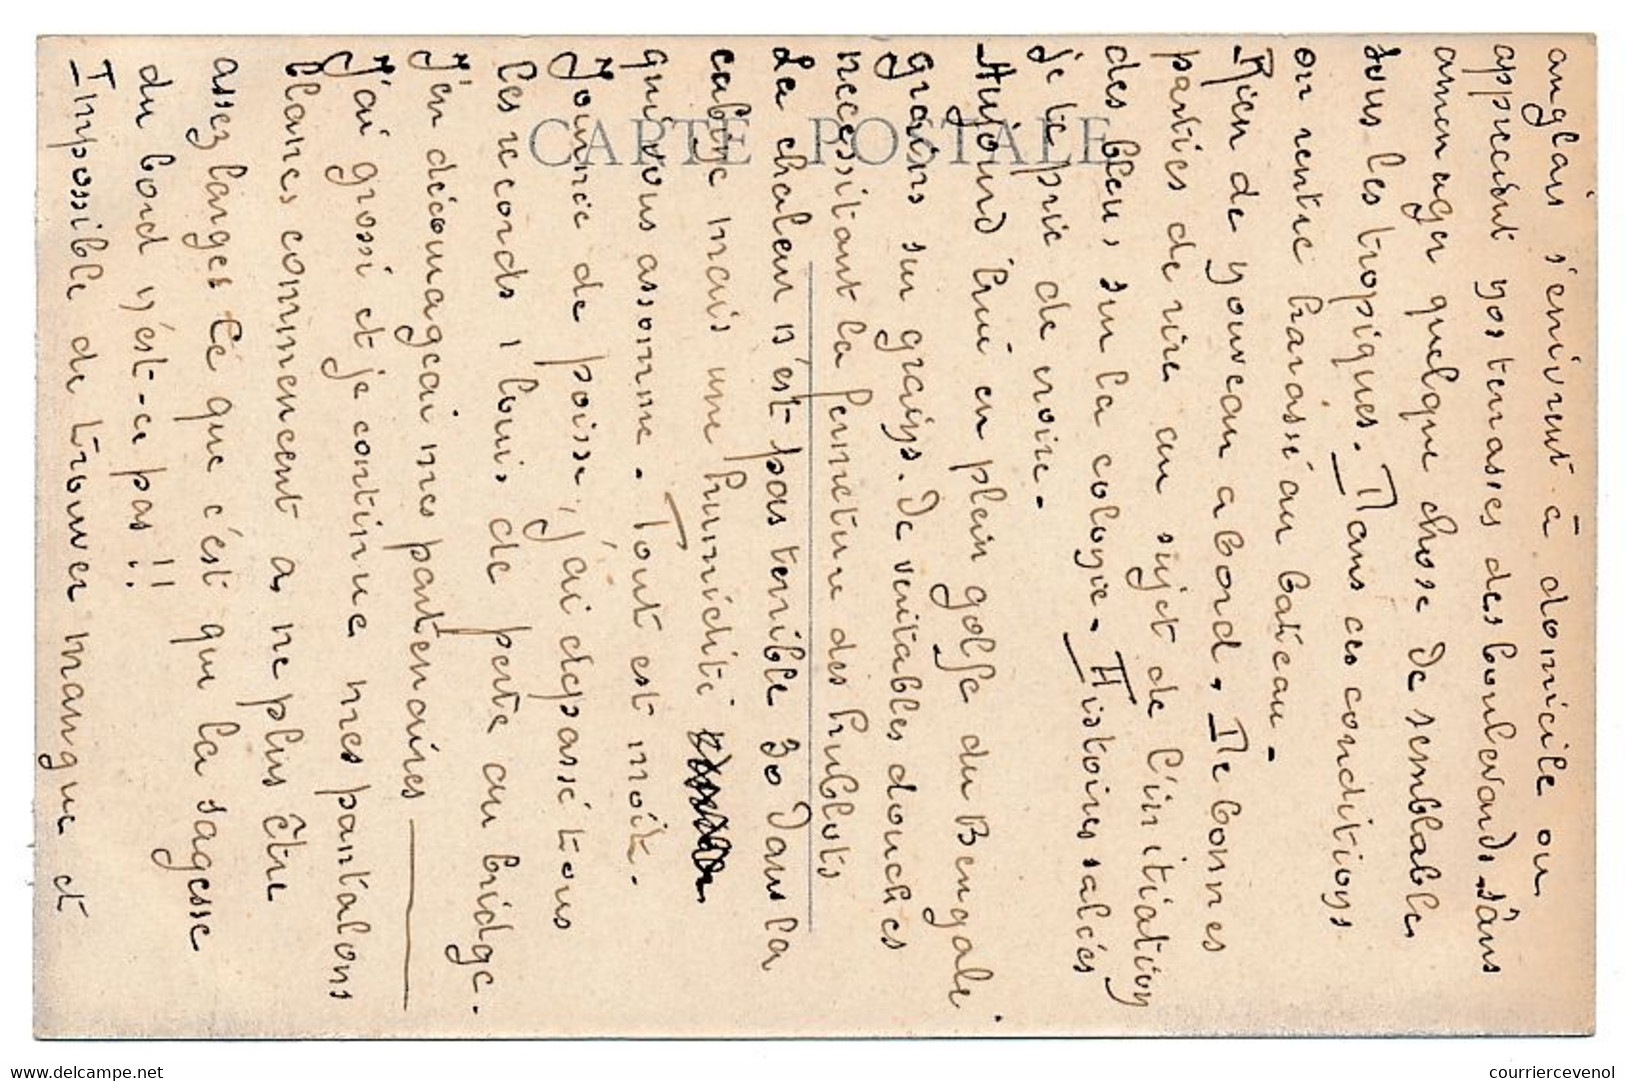 anglais s'enivrent à domicile ou
apprecient nos terrasses des boulevards. sans
amenager quelque chose de semblable
sous les tropiques. Dans ces conditions
on rentre harassé au bateau -
Rien de nouveau a bord. De bonnes
parties de rire au sujet de l'initiation
des bleus sur la colonie. Histoires salées
je te prie de croire -
Aujourd'hui en plein golfe du Bengale.
grains sur grains. De veritables douches
necessitant la fermeture des hublots
La chaleur n'est pas terrible 30 dans la
cabine mais une humidité
qui vous assomme - Tout est moite.
Journée de poisse, j'ai dépassé tous
les records 1 louis de perte au bridge.
J'en décourageai mes partenaires
J'ai grossi et je continue mes pantalons
blancs commencent a ne plus être
assez larges Ce que c'est que la sagesse
du bord n'est-ce pas!!
Impossible de trouver mangue et
CARTE POSTALE
courriercevenol